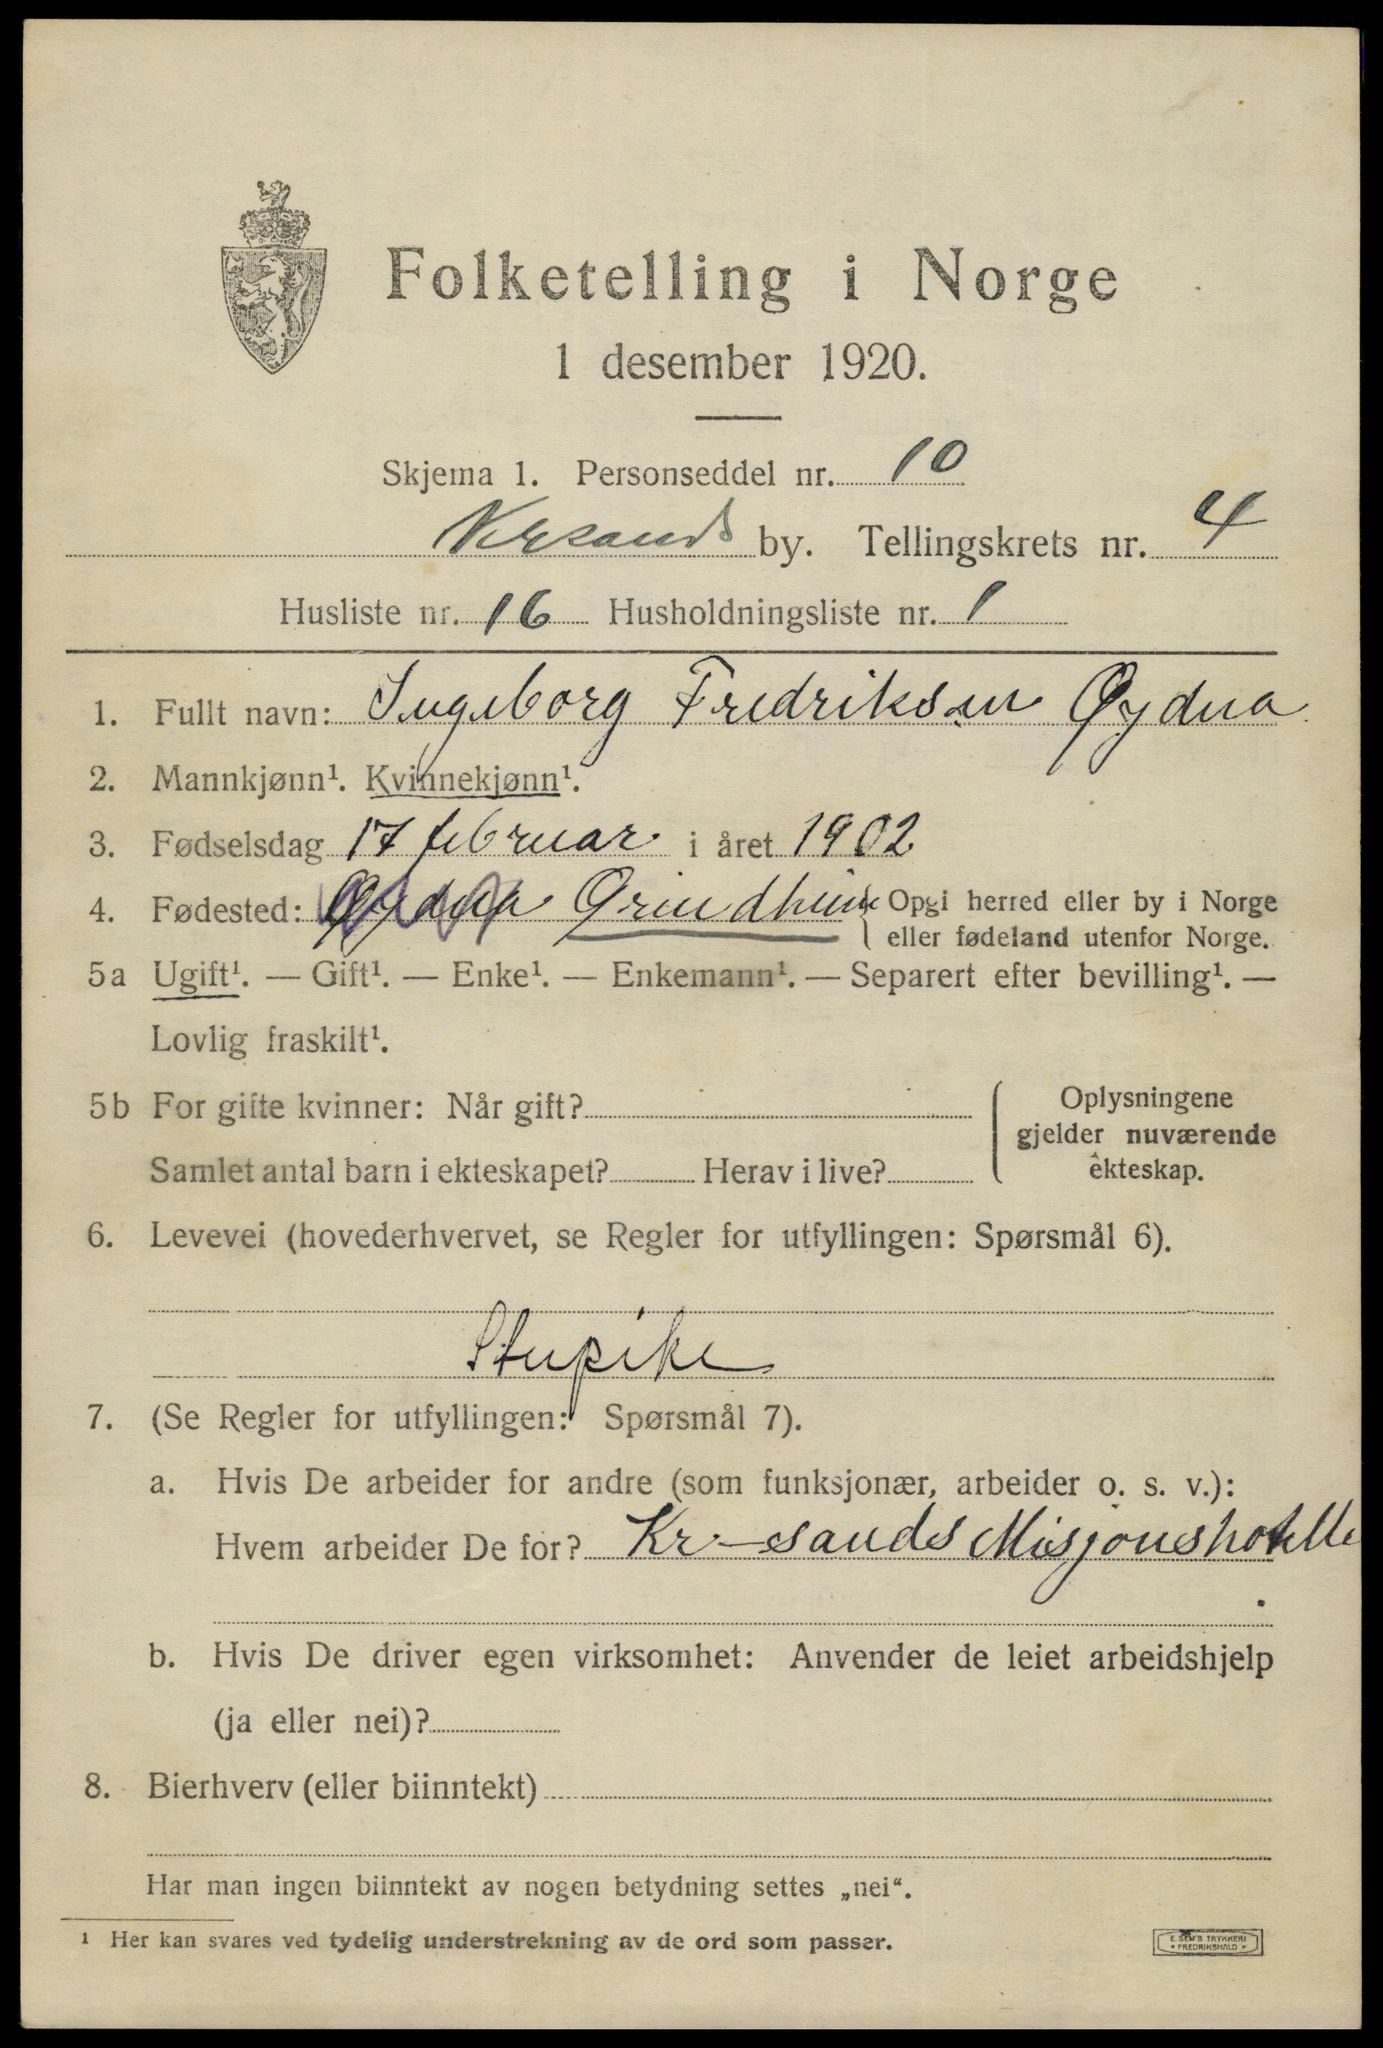 Folketelling i Norge
1 desember 1920.
Skjema 1. Personseddel nr. 10
Krsand by. Tellingskrets nr. 4
Husliste nr. 16 Husholdningsliste nr. 1
1. Fullt navn: Ingeborg Fredriksen Øydna
2. Mannkjønn¹. Kvinnekjønn¹.
3. Fødselsdag 17 februar i året 1902
4. Fødested: Øydna Grindheim { Opgi herred eller by i Norge
eller fødeland utenfor Norge.
5a Ugift¹. — Gift¹. — Enke¹. — Enkemann¹. — Separert efter bevilling¹. —
Lovlig fraskilt¹.
5b For gifte kvinner: Når gift?
Samlet antal barn i ekteskapet? Herav i live?
Oplysningene
gjelder nuværende
ekteskap.
6. Levevei (hovederhvervet, se Regler for utfyllingen: Spørsmål 6).
Stupike
7. (Se Regler for utfyllingen: Spørsmål 7).
a. Hvis De arbeider for andre (som funksjonær, arbeider o. s. v.):
Hvem arbeider De for? Kr-sands Misjonshotelle
.
b. Hvis De driver egen virksomhet: Anvender de leiet arbeidshjelp
(ja eller nei)?
8. Bierhverv (eller biinntekt)
Har man ingen biinntekt av nogen betydning settes „nei“.
¹ Her kan svares ved tydelig understrekning av de ord som passer.
E. SEM'S TRYKKERI
* FREDRIKSHALD *